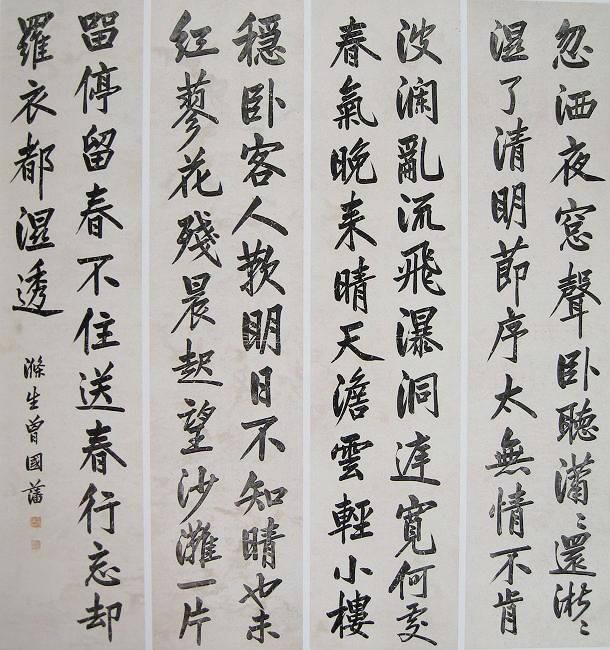 忽洒夜窓聲卧聽瀟〻還淅〻
湿了清明節序太無情不肯
波澜亂流飛瀑洞庭寛何處
春氣晚来晴天澹雲輕小樓
穩卧客人歎明日不知晴也未
红蓼花殘晨起望沙灘一片
留停留春不住送春行忘却
羅衣都湿透
滌生曾國藩